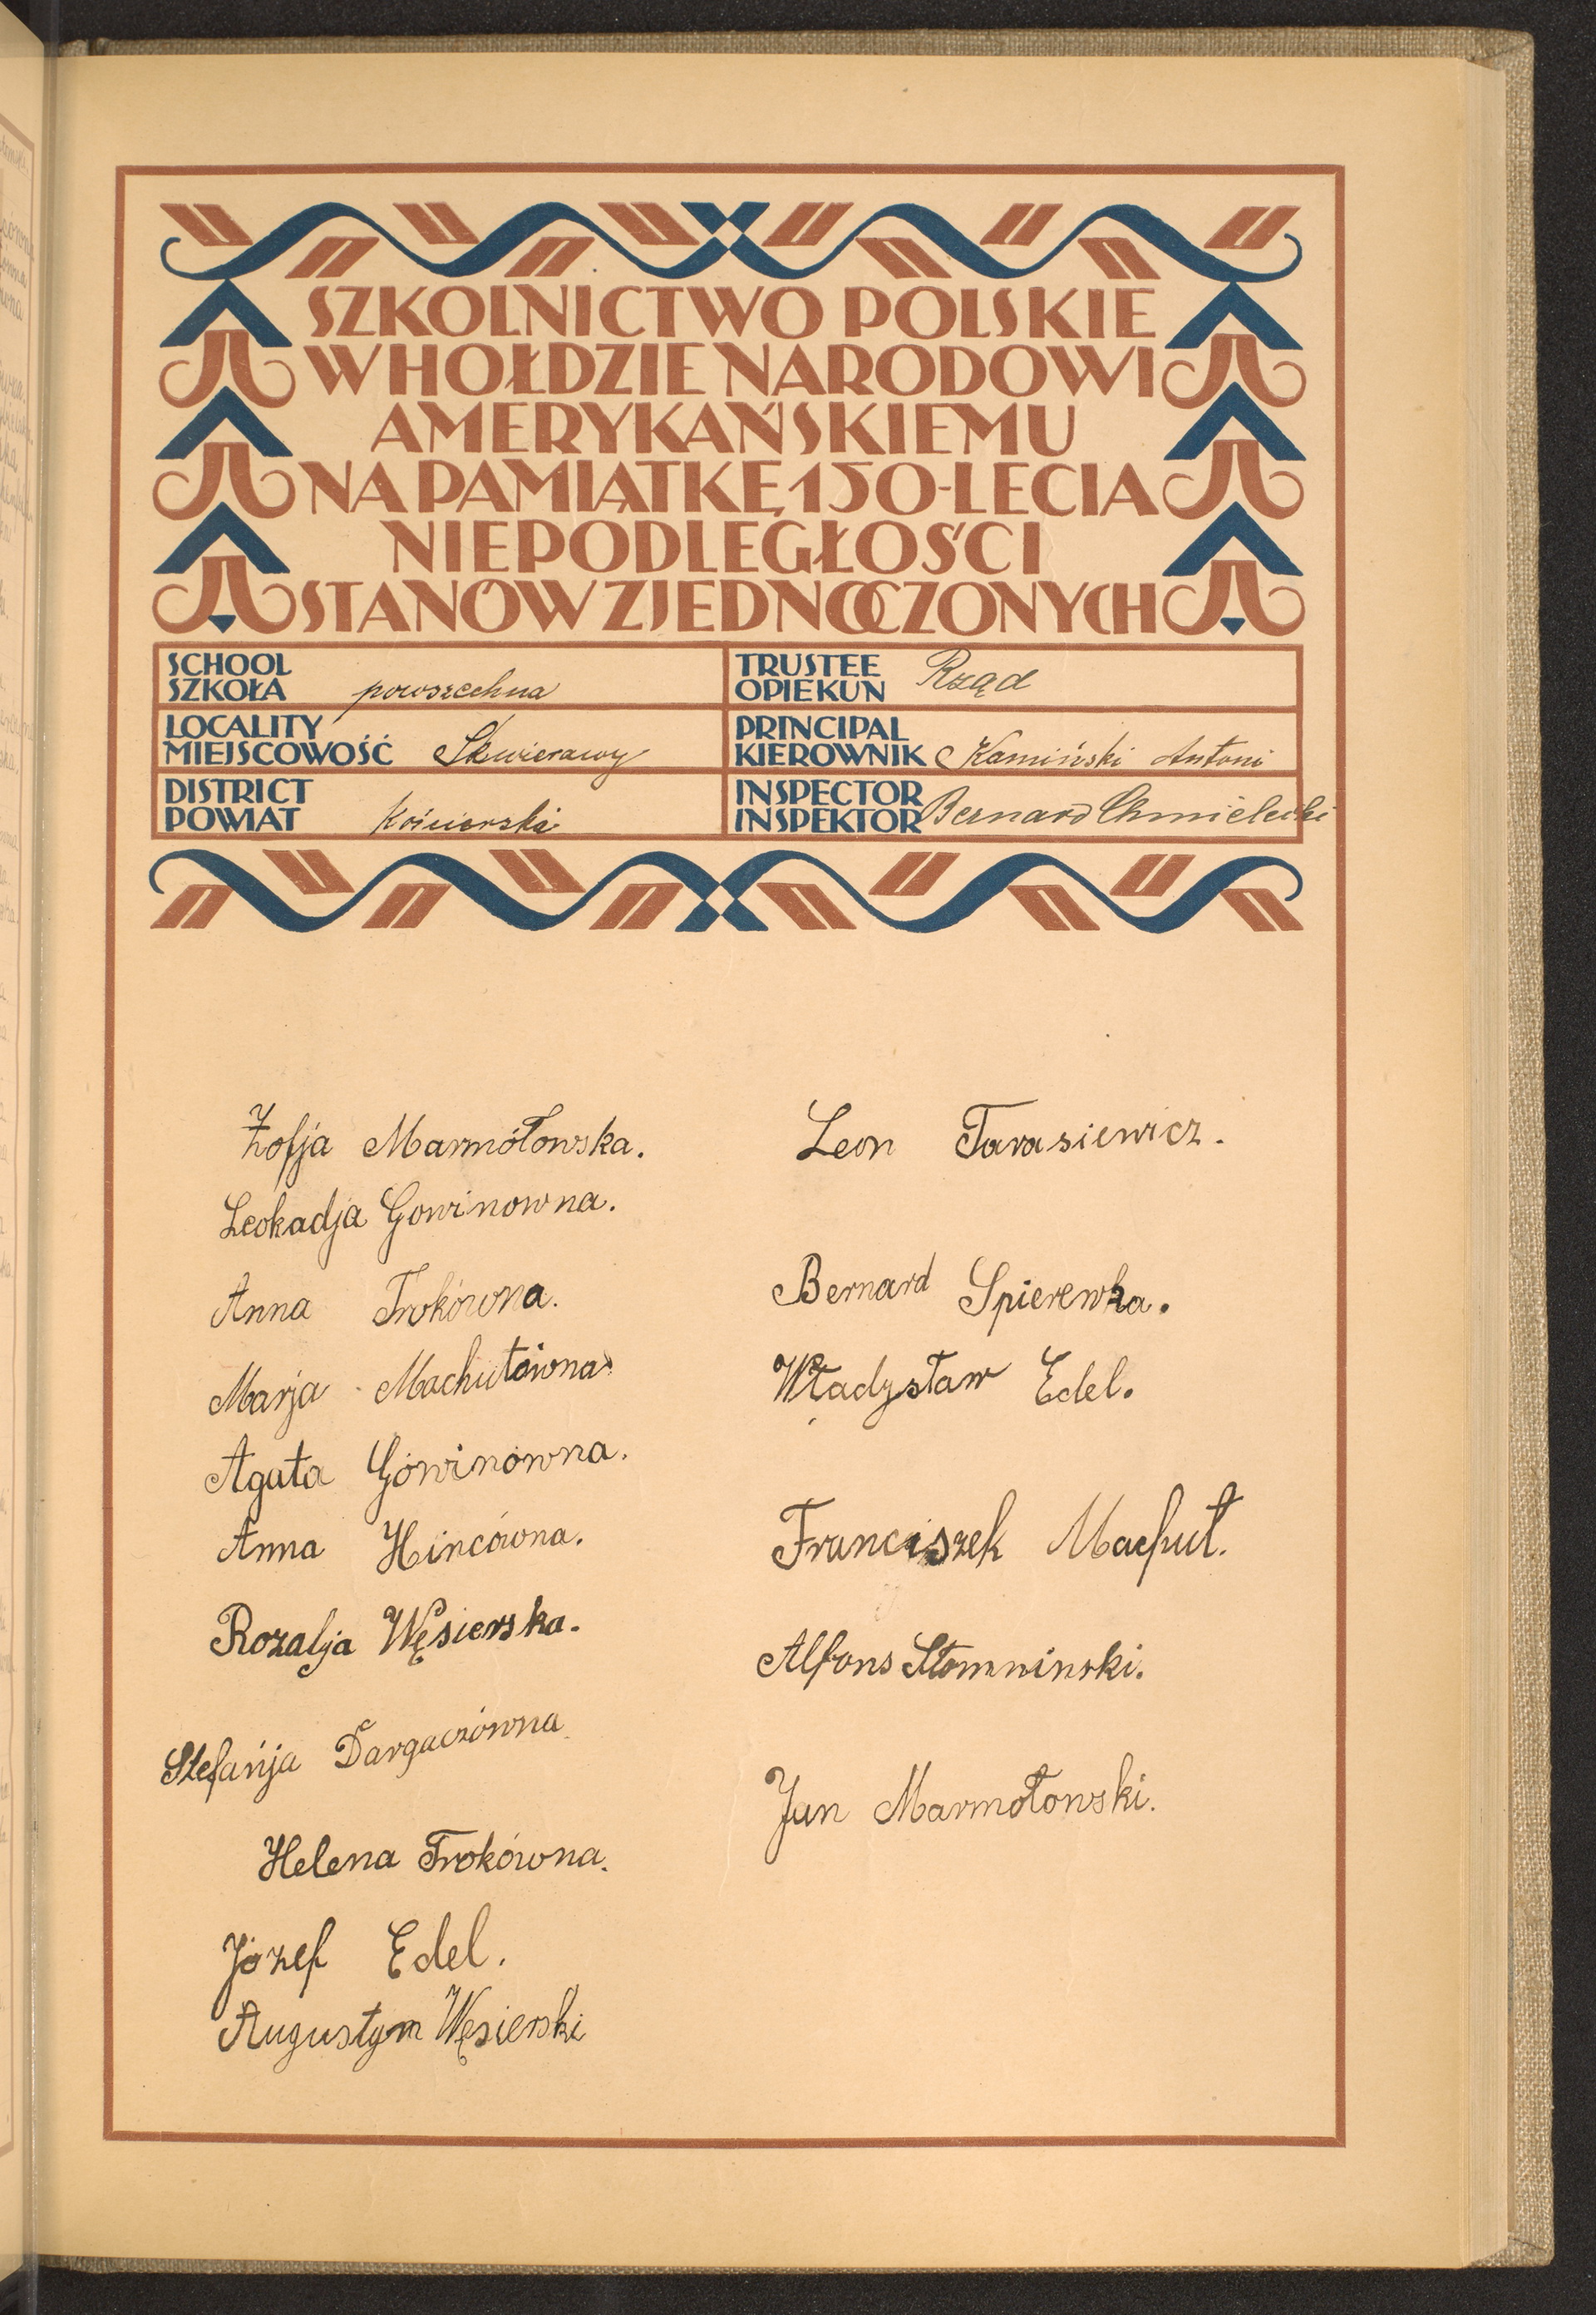 SZKOLNICTWO POLSKIE
W HOŁDZIE NARODOWI
AMERYKAŃSKIEMU
NA PAMIĄTKĘ 150-LECIA
NIEPODLEGŁOŚCI
STANÓW ZJEDNOCZONYCH
SCHOOL
SZKOŁA powszechna
TRUSTEE
OPIEKUN Rząd
LOCALITY
MIEJSCOWOŚĆ Skwierawy
PRINCIPAL
KIEROWNIK Kamiński Antoni
DISTRICT
POWIAT Kościerski
INSPECTOR
INSPEKTOR Bernard Chmielecki
Zofja Marmółowska.
Leokadja Gowinowna.
Anna Trokówna.
Marja Machutówna
Agata Gówinówna.
Anna Hincówna.
Rozalja Węsierska.
Stefańja Dargaczówna.
Helena Trokówna.
Józef Edel.
Augustym Węsierski
Leon Tarasiewicz.
Bernard Spierewka.
Władysław Edel.
Franciszek Machut.
Alfons Słomninski.
Jan Marmołowski.